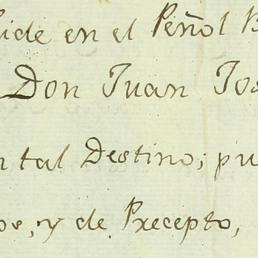 ide en el Peñol B
Don Juan Jos
n tal Destino; pu
os, y de Precepto,